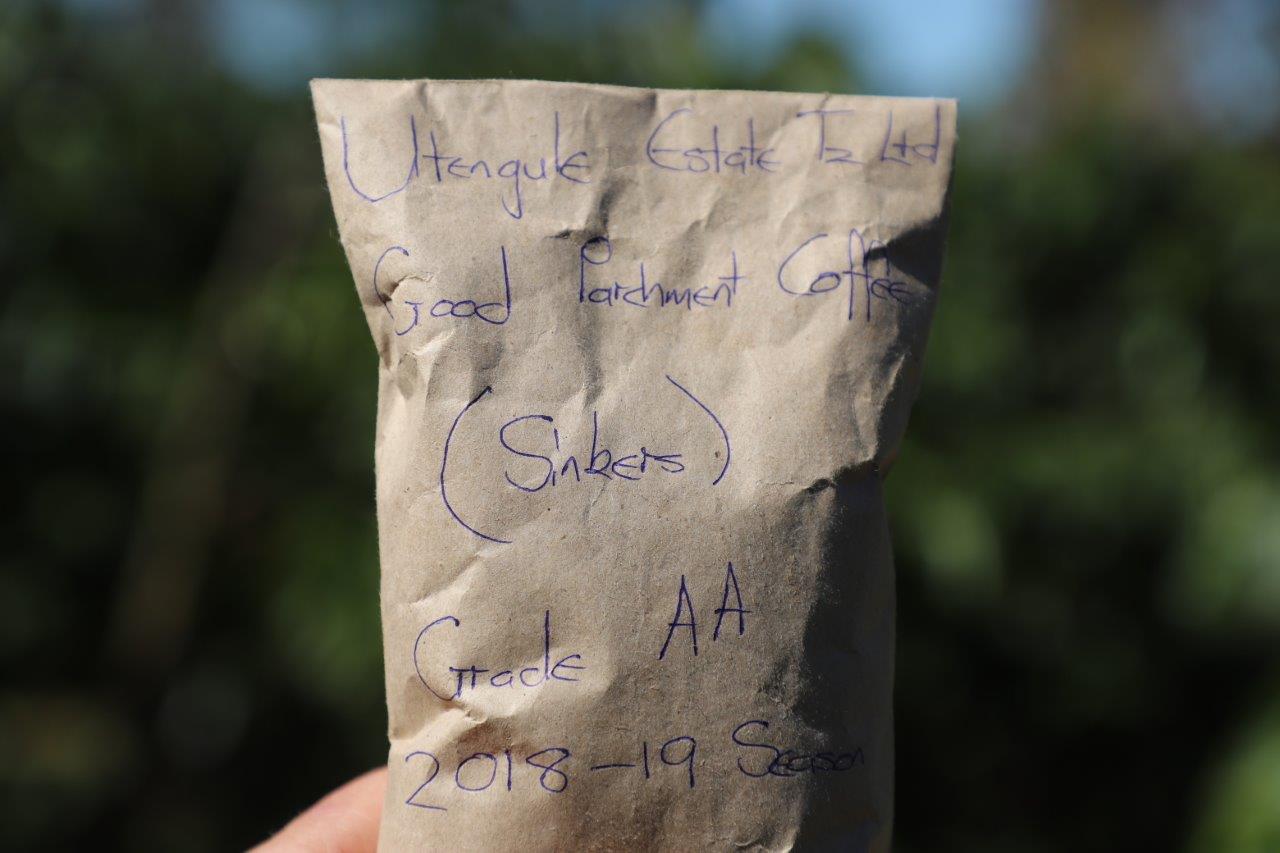 Utengule Estate Tz Ltd
Good Parchment Coffee
(Sinkers)
Grade AA
2018-19 Season